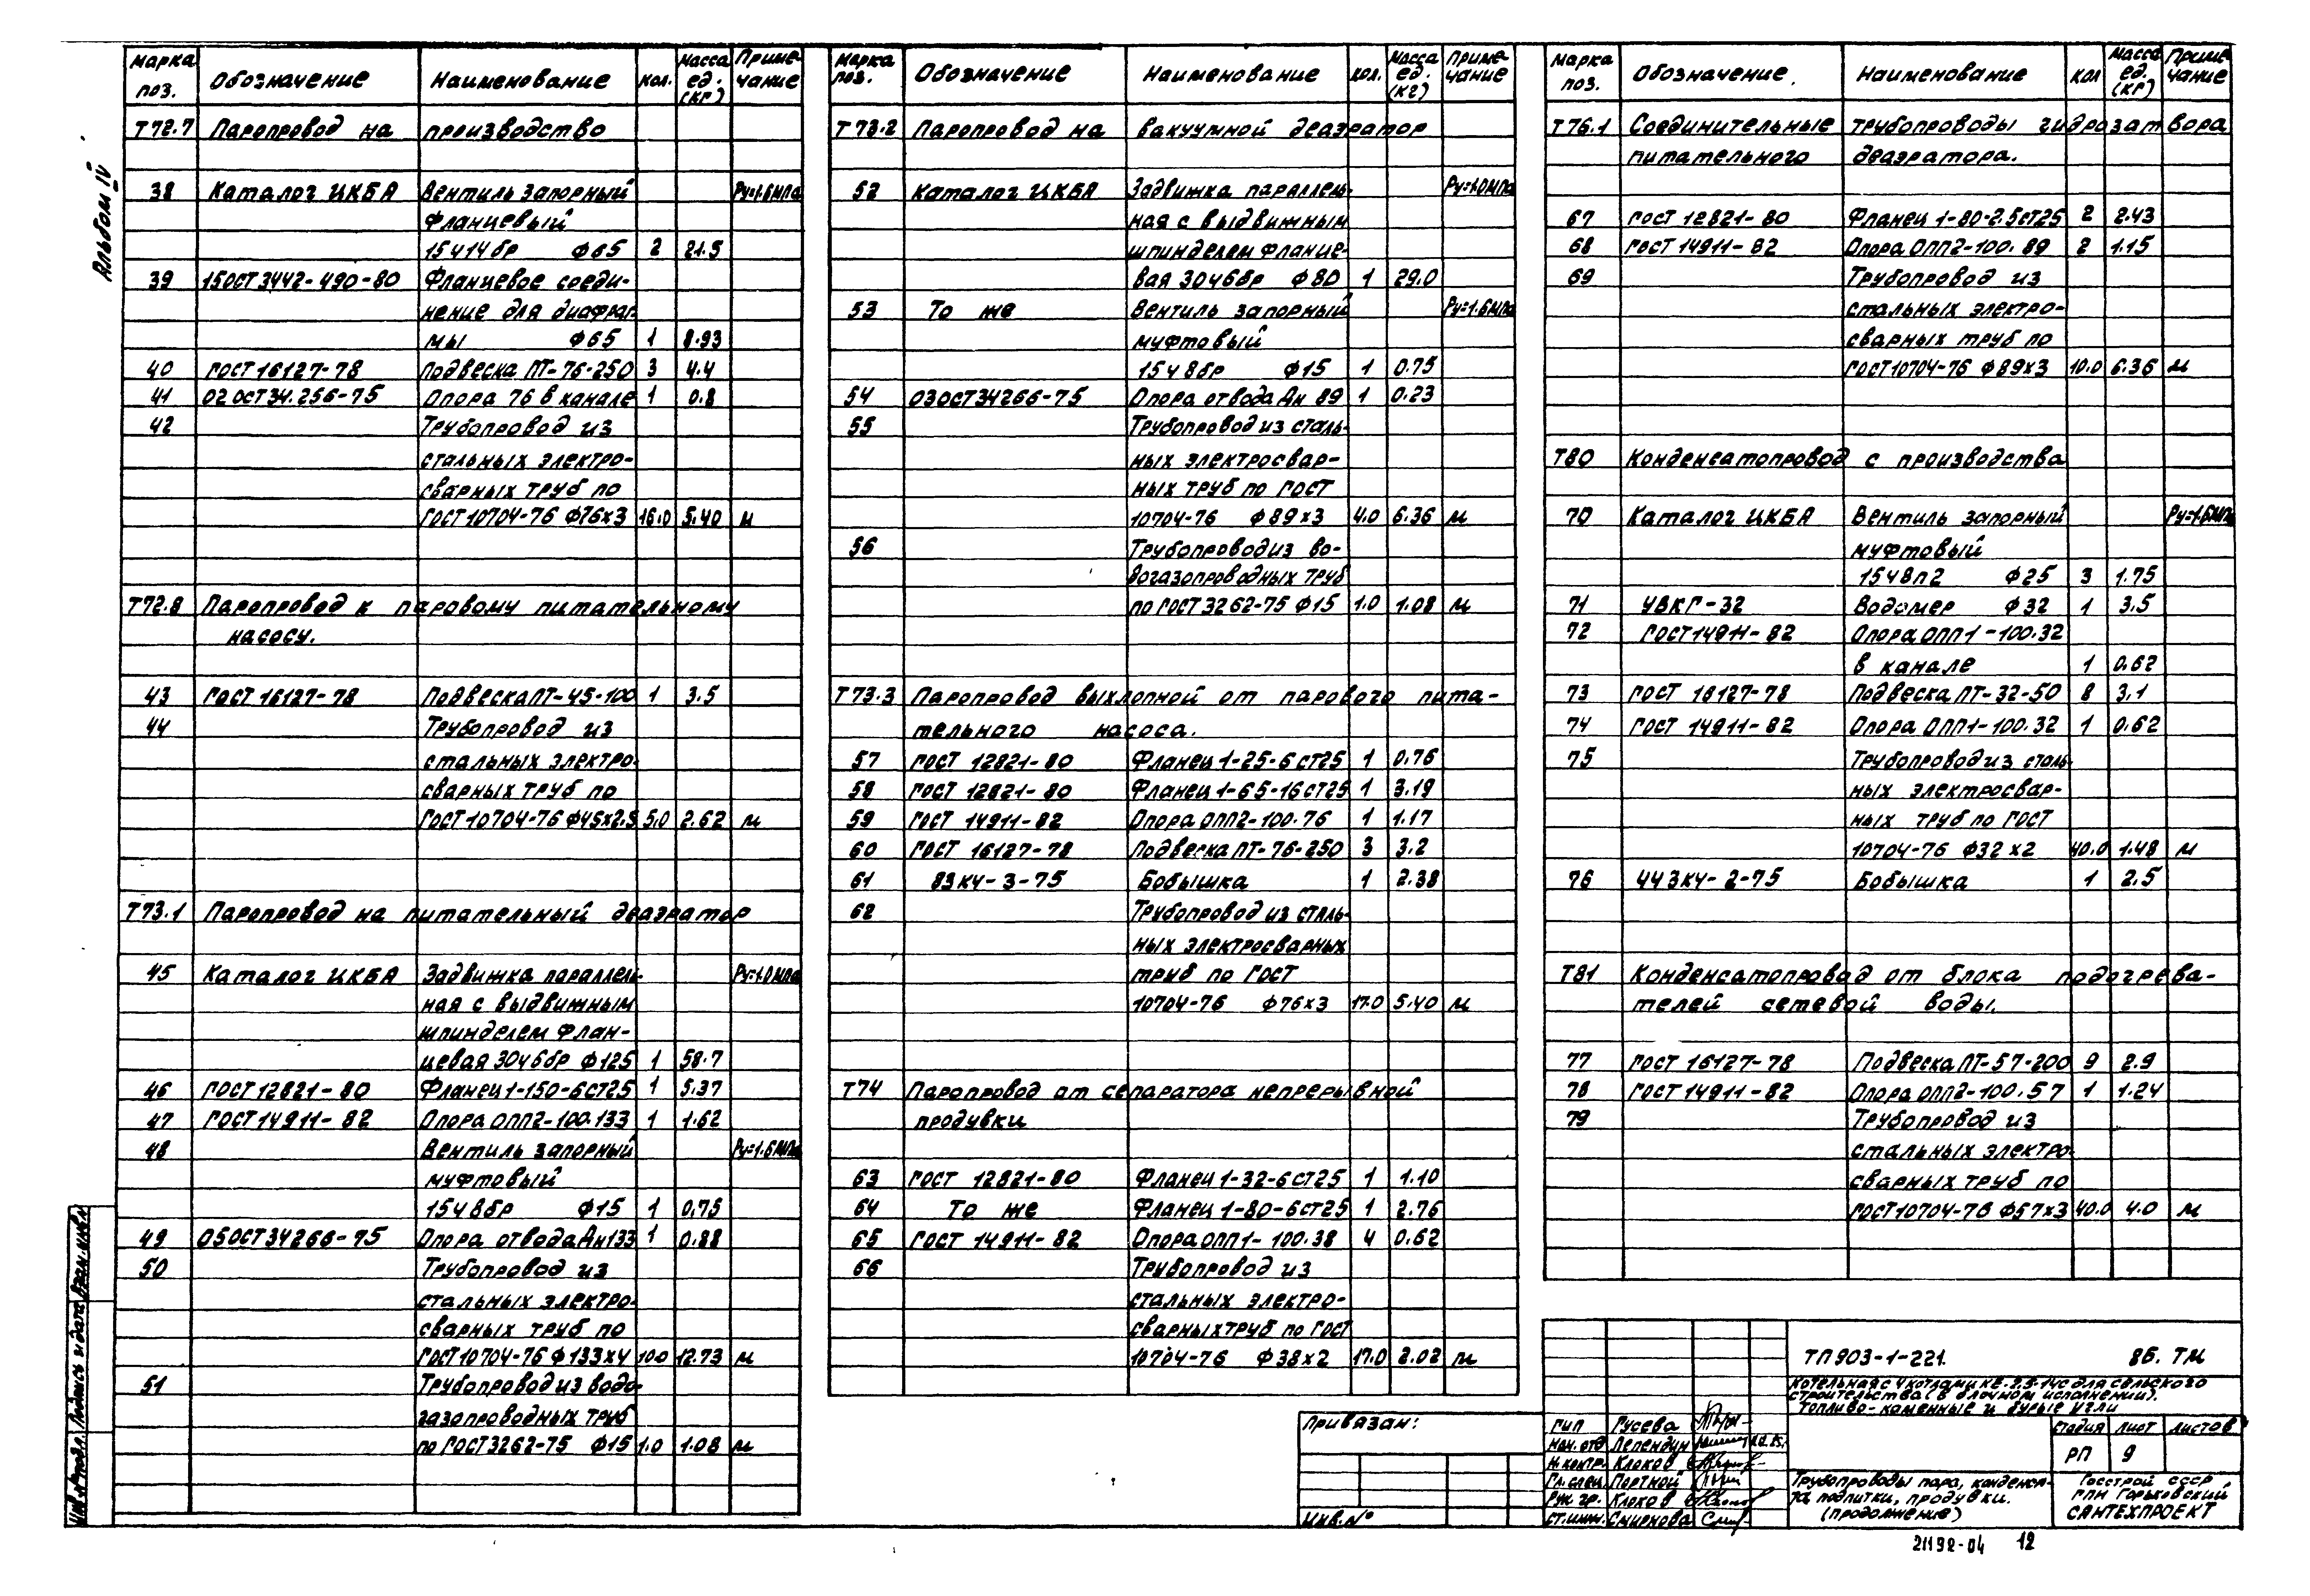 Альбом IV
Марка поз. Обозначение Наименование Кол. Масса ед. (кг) Примечание
Т72.7 Паропровод на производство
38 Каталог ЦКБА Вентиль запорный Ру=1.6МПа
фланцевый
15ч14бр Ф65 2 21.5
39 15ОСТ3442-490-80 Фланцевое соеди-
нение для диафраг-
мы Ф65 1 8.93
40 ГОСТ 16127-78 Подвеска ПТ-76-250 3 4.4
41 02 ОСТ34.256-75 Опора 76 в канале 1 0.8
42 Трубопровод из
стальных электро-
сварных труб по
ГОСТ 10704-76 Ф76х3 16.0 5.40 м
Т72.8 Паропровод к паровому питательному
насосу.
43 ГОСТ 16127-78 Подвеска ПТ-45-100 1 3.5
44 Трубопровод из
стальных электро-
сварных труб по
ГОСТ 10704-76 Ф45х2.5 5.0 2.62 м
Т73.1 Паропровод на питательный деаэратор
45 Каталог ЦКБА Задвижка параллель- Ру=1.0МПа
ная с выдвижным
шпинделем флан-
цевая 30ч6бр Ф125 1 58.7
46 ГОСТ 12821-80 Фланец 1-150-6ст25 1 5.37
47 ГОСТ 14911-82 Опора ОПП2-100.133 1 1.62
48 Вентиль запорный Ру=1.6МПа
муфтовый
15ч8бр Ф15 1 0.75
49 05ОСТ34266-75 Опора отвода Дн133 1 0.88
50 Трубопровод из
стальных электро-
сварных труб по
ГОСТ 10704-76 Ф133х4 10.0 12.73 м
51 Трубопровод из водо-
газопроводных труб
по ГОСТ 3262-75 Ф15 1.0 1.08 м
Марка поз. Обозначение Наименование Кол. Масса ед. (кг) Примечание
Т73.2 Паропровод на вакуумной деаэратор
52 Каталог ЦКБА Задвижка параллель- Ру=1.0МПа
ная с выдвижным
шпинделем фланце-
вая 30ч6бр Ф80 1 29.0
53 То же Вентиль запорный Ру=1.6МПа
муфтовый
15ч8бр Ф15 1 0.75
54 03ОСТ34266-75 Опора отвода Дн 89 1 0.23
55 Трубопровод из сталь-
ных электросвар-
ных труб по ГОСТ
10704-76 Ф89х3 4.0 6.36 м
56 Трубопровод из во-
догазопроводных труб
по ГОСТ 3262-75 Ф15 1.0 1.08 м
Т73.3 Паропровод выхлопной от парового пита-
тельного насоса.
57 ГОСТ 12821-80 Фланец 1-25-6ст25 1 0.76
58 ГОСТ 12821-80 Фланец 1-65-16ст25 1 3.19
59 ГОСТ 14911-82 Опора ОПП2-100.76 1 1.17
60 ГОСТ 16127-78 Подвеска ПТ-76-250 3 3.2
61 83КЧ-3-75 Бобышка 1 2.38
62 Трубопровод из сталь-
ных электросварных
труб по ГОСТ
10704-76 Ф76х3 17.0 5.40 м
Т74 Паропровод от сепаратора непрерывной
продувки
63 ГОСТ 12821-80 Фланец 1-32-6ст25 1 1.10
64 То же Фланец 1-80-6ст25 1 2.76
65 ГОСТ 14911-82 Опора ОПП1-100.38 4 0.62
66 Трубопровод из
стальных электро-
сварных труб по ГОСТ
10704-76 Ф38х2 17.0 2.02 м
Марка поз. Обозначение Наименование Кол Масса ед. (кг) Примечание
Т76.1 Соединительные трубопроводы гидрозатвора
питательного деаэратора.
67 ГОСТ 12821-80 Фланец 1-80-2.5ст25 2 2.43
68 ГОСТ 14911-82 Опора ОПП2-100.89 2 1.15
69 Трубопровод из
стальных электро-
сварных труб по
ГОСТ 10704-76 Ф89х3 10.0 6.36 м
Т80 Конденсатопровод с производства
70 Каталог ЦКБА Вентиль запорный Ру=1.6МПа
муфтовый
15ч8п2 Ф25 3 1.75
71 УВКГ-32 Водомер Ф32 1 3.5
72 ГОСТ 14911-82 Опора ОПП1-100.32
в канале 1 0.62
73 ГОСТ 16127-78 Подвеска ПТ-32-50 8 3.1
74 ГОСТ 14911-82 Опора ОПП1-100.32 1 0.62
75 Трубопровод из сталь-
ных электросвар-
ных труб по ГОСТ
10704-76 Ф32х2 40.0 1.48 м
76 443КЧ-2-75 Бобышка 1 2.5
Т81 Конденсатопровод от блока подогрева-
телей сетевой воды.
77 ГОСТ 16127-78 Подвеска ПТ-57-200 9 2.9
78 ГОСТ 14911-82 Опора ОПП2-100.57 1 1.24
79 Трубопровод из
стальных электро-
сварных труб по
ГОСТ 10704-76 Ф57х3 40.0 4.0 м
ТП 903-1-221. 86. ТМ
Котельная с 4 котлами КЕ-2,5-14С для сельского
строительства (в блочном исполнении).
Топливо-каменные и бурые угли
Привязан:
Инв.№
ГИП Гусева
Нач. отд Лепендин
Н.контр. Клоков
Гл. спец. Портной
Рук. гр. Клоков
Ст. инж. Смирнова
Стадия Лист Листов
РП 9
Трубопроводы пара, конденса-
та, подпитки, продувки.
(продолжение)
Госстрой СССР
ГПИ Горьковский
САНТЕХПРОЕКТ
Инв.№подл. Подпись и дата Взам.инв.№
21192-04 12